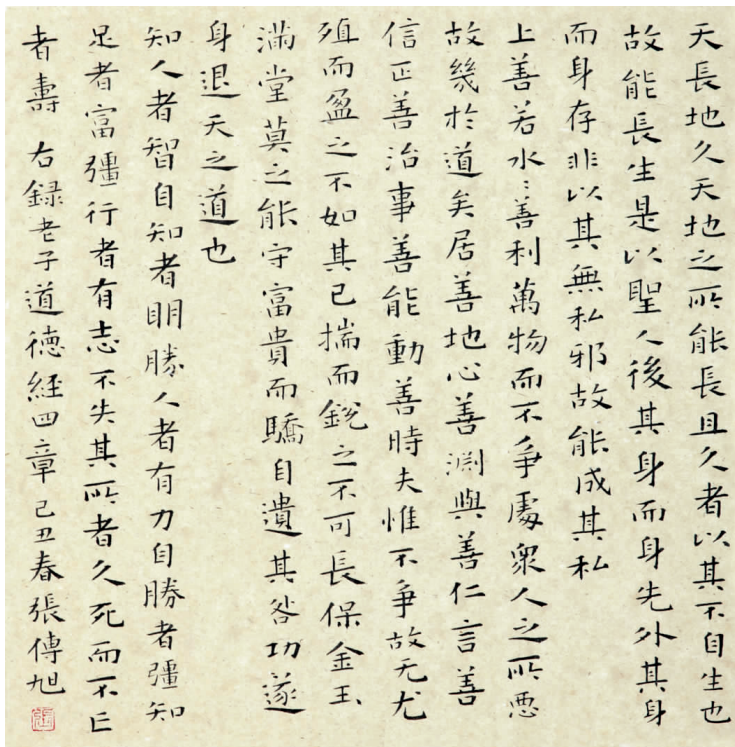 天長地久天地之所能長且久者以其不自生也
故能長生是以聖人後其身而身先外其身
而身存非以其無私邪故能成其私
上善若水〻善利萬物而不爭處衆人之所惡
故幾於道矣居善地心善淵與善仁言善
信正善治事善能動善時夫惟不爭故无尤
殖而盈之不如其已揣而銳之不可長保金玉
滿堂莫之能守富貴而驕自遺其咎功遂
身退天之道也
知人者智自知者明勝人者有力自勝者彊知
足者富彊行者有志不失其所者久死而不亡
者壽 右録老子道德經四章 己丑春張傳旭